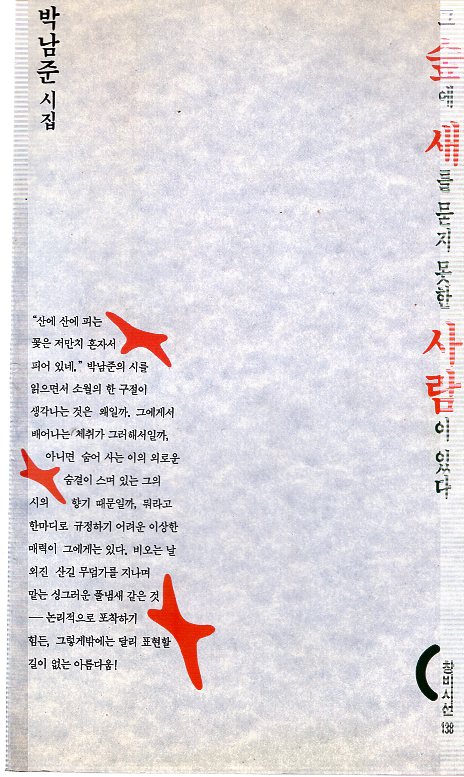 박남준 시집
그 숲에 새를 묻지 못한 사람이 있다
"산에 산에 피는
꽃은 저만치 혼자서
피어 있네." 박남준의 시를
읽으면서 소월의 한 구절이
생각나는 것은 왜일까. 그에게서
배어나는 체취가 그러해서일까,
아니면 숨어 사는 이의 외로운
숨결이 스며 있는 그의
시의 향기 때문일까, 뭐라고
한마디로 규정하기 어려운 이상한
매력이 그에게는 있다. 비오는 날
외진 산길 무덤가를 지나며
맡는 싱그러운 풀냄새 같은 것
── 논리적으로 포착하기
힘든, 그렇게밖에는 달리 표현할
길이 없는 아름다움!
창비시선
138